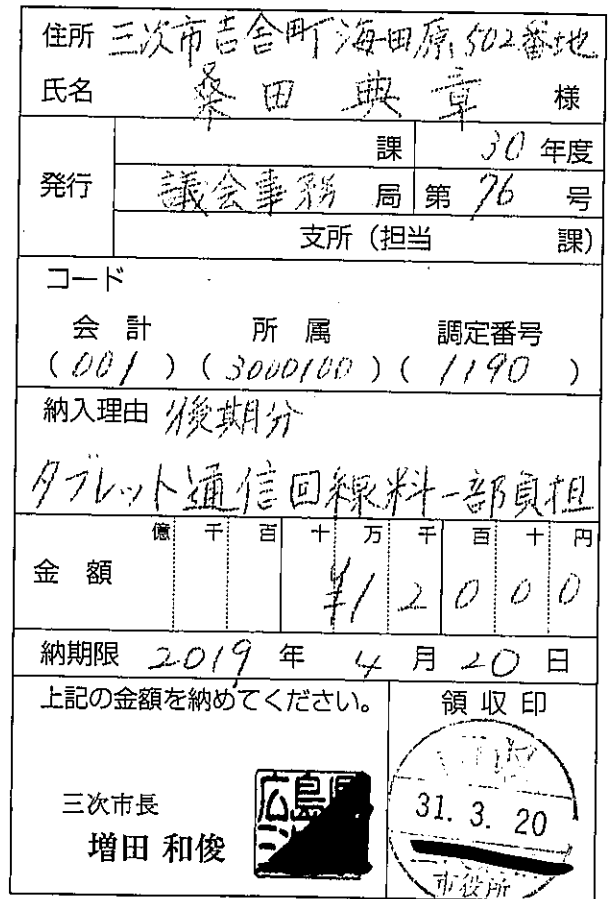 住所 三次市吉舎町海田原502番地
氏名 桑田 典章 様
発行
課 30年度
議会事務局 第76号
支所(担当 課)
コード
会計 所属 調定番号
(001)(3000100)(1190)
納入理由 後期分
タブレット通信回線料一部負担
億 千 百 十 万 千 百 十 円
金額 ¥12000
納期限 2019年4月20日
上記の金額を納めてください。
三次市長
増田 和俊
広島県
領収印
31.3.20
市役所